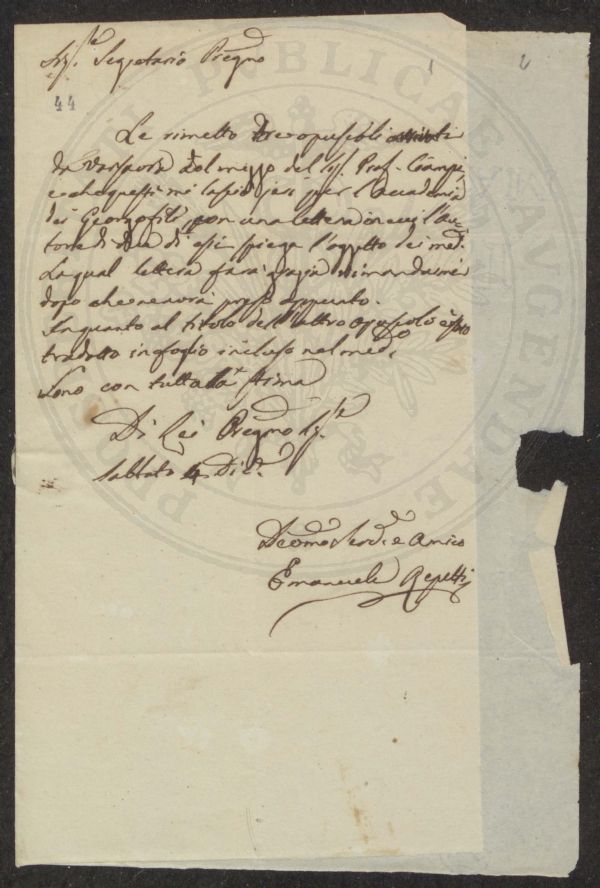 Sig.re Segretario Pregmo
1
2
44
Le rimetto tre opuscoli
da Varsavia dal mezzo del Sig. Prof. Ciampi,
e che questi mi lasciò jeri per l'accademia
dei Georgofili con una lettera in cui l'au-
tore di due di essi spiega l'oggetto dei med.
La qual lettera farà grazia rimandarmi
dopo che ne avrà preso appunto.
In quanto al titolo dell'altro opuscolo è
tradotto in foglio incluso nel med.o
Sono con tutta la stima
Di Lei Pregmo Sig.re
Sabbato 4 Dic.e
Devmo Serv.e e Amico
Emanuele Repetti
PRO PUBLICAE AUGENDAE